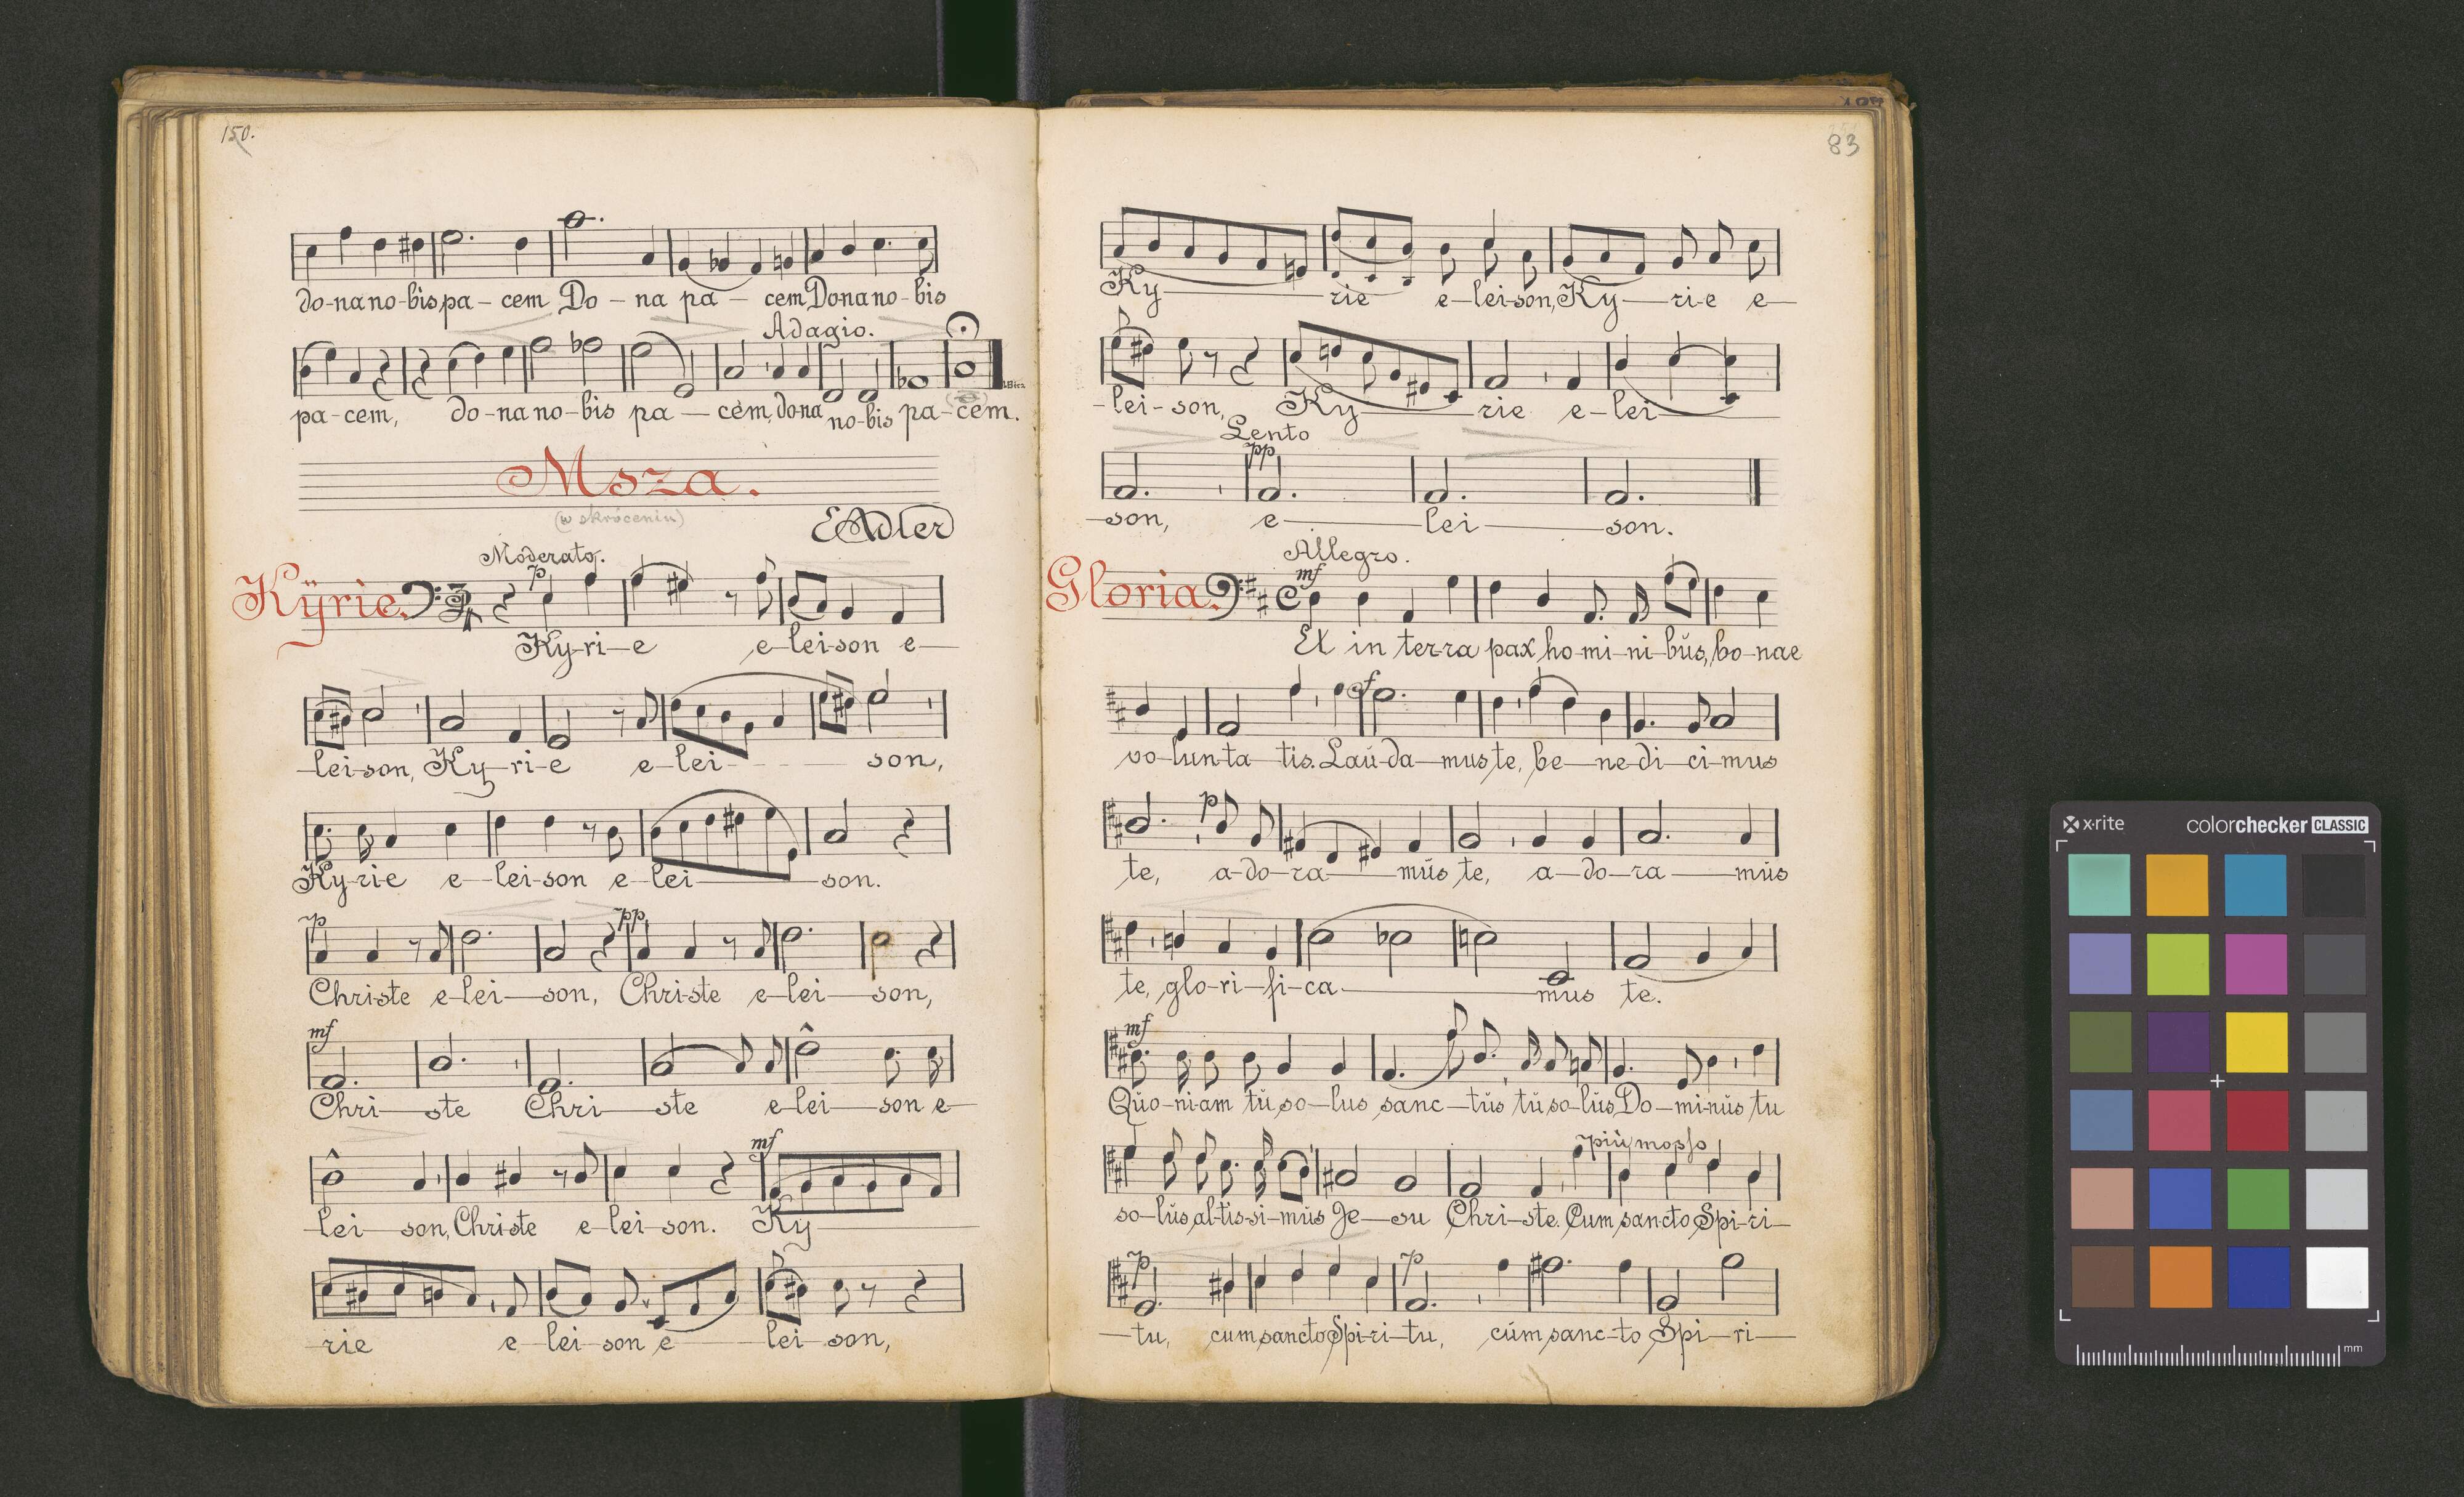 150.
do-na no-bis pa-cem Do-na pa-cem Dona no-bis
Adagio.
pa-cem, do-na no-bis pa-cem, dona no-bis pa-cem.
Msza.
(w skróceniu)
EAdler
Moderato.
p
Kÿrie.
Ky-ri-e e-lei-son e-
-lei-son, Ky-ri-e e-lei- son,
Ky-rie e-lei-son e-lei-son.
p pp
Christe e-lei-son, Christe e-lei-son,
mf
Chri-ste Chri-ste e-lei-son e-
mf
-lei-son, Christe e-lei-son. Ky-
-rie e-lei-son e-lei-son,
83
Ky-rie e-lei-son, Ky-ri-e e-
-lei-son, Ky-rie e-lei-
Lento
pp
-son, e-lei-son.
Allegro.
mf
Gloria.
C
Et in terra pax ho-mi-ni-bŭs, bo-nae
f
vo-lun-ta-tis. Laŭ-da-mus te, be-ne-di-ci-mus
p
te, a-do-ra-mŭs te, a-do-ra-mŭs
te, glo-ri-fi-ca-mus te.
mf
Qŭo-ni-am tŭ so-lus sanc-tŭs, tŭ so-lŭs Do-mi-nŭs, tu
più mosso
so-lŭs al-tis-si-mŭs Je-su Chri-ste. Cum sancto Spi-ri-
p p
-tu, cum sancto Spi-ri-tu, cŭm sanc-to Spi-ri-
x·rite colorchecker CLASSIC
mm